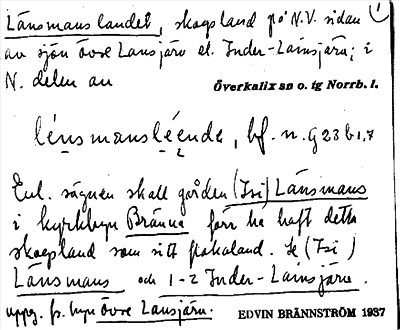 Länsmanslandet, skogsland på N.V. sidan 1)
av sjön övre Lansjärv el. Inder-Lainsjärv; i
N. delen av Överkalix sn o. tg Norrb. l.
lénsmansléende, bf. n. G 23 b 1,7
Enl. sägnen skall gården (Isi) Länsmans
i kyrkbyn Bränna förr ha haft detta
skogsland som sitt fiskaland. Se (Isi)
Länsmans och 1-2 Inder-Lainsjärv.
uppg. fr. byn övre Lansjärv. EDVIN BRÄNNSTRÖM 1937